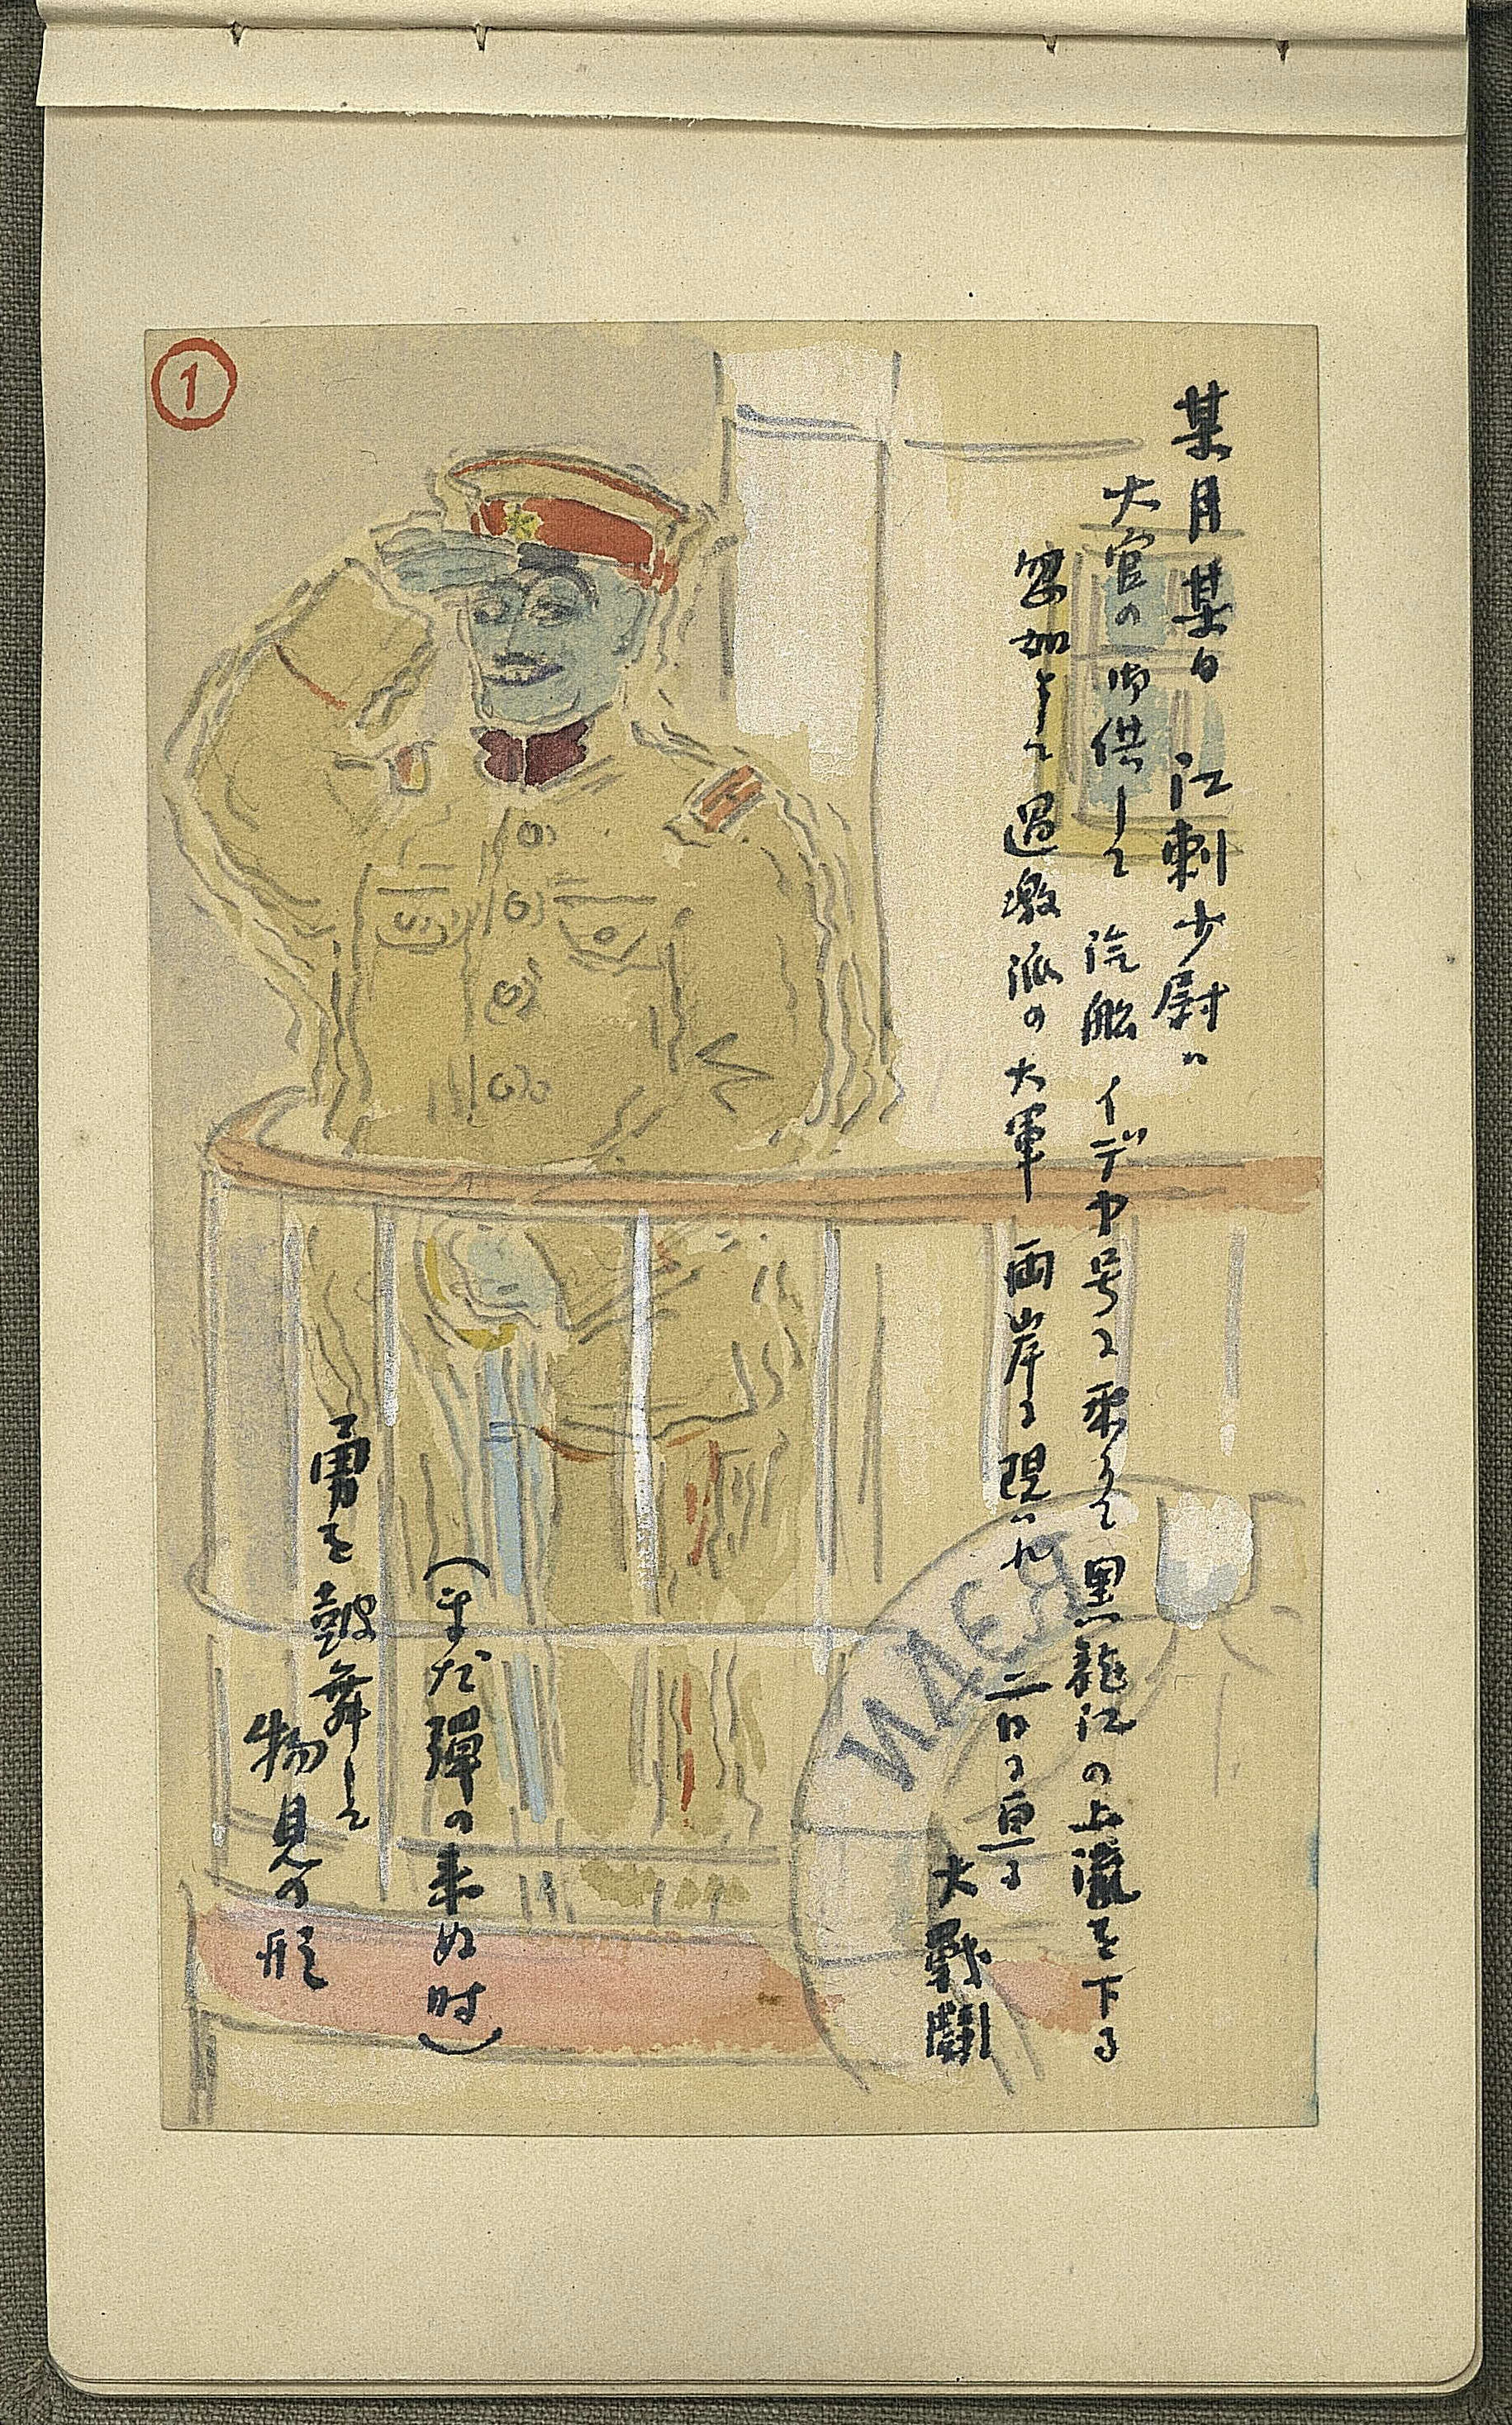 1
某月某日 江刺少尉ハ
大官の御供して 汽船 イデヤ号に乗りて 黒龍江の上流を下る
忽如として 過激派の大軍 両岸に現ハれ 二日に亘る
大戰鬪
(まだ彈の来ぬ時)
勇を鼓舞して
物見の形